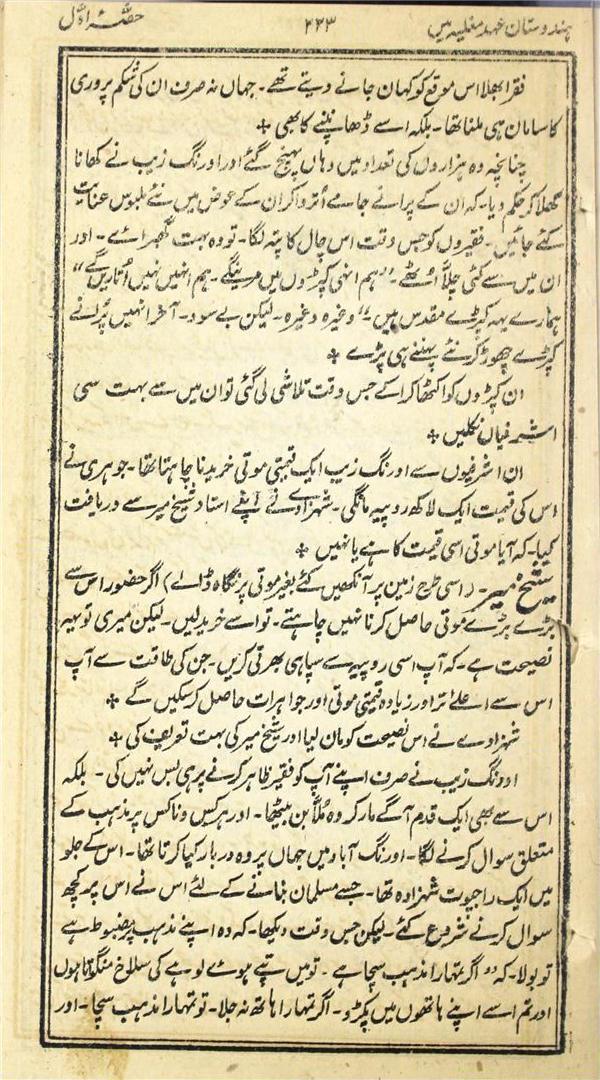 ہندوستان عہد مغلیہ میں ۲۲۳ حصہ اول
فقرا بھلا اس موقع کو کہاں جانے دیتے تھے۔ جہاں نہ صرف ان کی شکم پروری
کا سامان ہی ملنا تھا۔ بلکہ اسے ڈھاپنے کا بھی ❖
چنانچہ وہ ہزاروں کی تعداد میں وہاں پہنچ گئے اور اورنگ زیب نے کھانا
کھلا کر حکم دیا۔ کہ ان کے پرانے جامے اُتروا کر ان کے عوض میں نئے ملبوس عنایت
کئے جائیں۔ فقیروں کو جس وقت اس چال کا پتہ لگا۔ تو وہ بہت گھبرائے۔ اور
ان میں سے کئی چلّا اُٹھے۔ ”ہم انہی کپڑوں میں مرینگے۔ ہم انہیں نہیں اُتاریں گے“
ہمارے یہہ کپڑے مقدس ہیں“ وغیرہ وغیرہ۔ لیکن بے سود۔ آخر انہیں پُرانے
کپڑے چھوڑ کر نئے پہننے ہی پڑے ❖
ان کپڑوں کو اکٹھا کرا کے جس وقت تلاشی لی گئی تو ان میں سے بہت سی
اشرفیاں نکلیں ❖
ان اشرفیوں سے اورنگ زیب ایک قیمتی موتی خریدنا چاہتا تھا۔ جوہری نے
اس کی قیمت ایک لاکھ روپیہ مانگی۔ شہزادے نے اپنے استاد شیخ میر سے دریافت
کیا۔ کہ آیا موتی اسی قیمت کا ہے یا نہیں ❖
شیخ میر۔ (اسی طرح زمین پر آنکھیں کئے بغیر موتی پر نگاہ ڈالے) اگر حضور اس سے
بڑے بڑے موتی حاصل کرنا نہیں چاہتے۔ تو اسے خرید لیں۔ لیکن میری تو یہہ
نصیحت ہے۔ کہ آپ اسی روپیہ سے سپاہی بھرتی کریں۔ جن کی طاقت سے آپ
اس سے اعلےٰ تر اور زیادہ قیمتی موتی اور جواہرات حاصل کر سکیں گے ❖
شہزادے نے اس نصیحت کو مان لیا اور شیخ میر کی بہت تعریف کی ❖
اورنگ زیب نے صرف اپنے آپ کو فقیر ظاہر کرنے پر ہی بس نہیں کی۔ بلکہ
اس سے بھی ایک قدم آگے مار کر وہ مُلّا بن بیٹھا۔ اور ہر کس و ناکس پر مذہب کے
متعلق سوال کرنے لگا۔ اورنگ آباد میں جہاں پر وہ دربار کیا کرتا تھا۔ اس کے جلو
میں ایک راجپوت شہزادہ تھا۔ جسے مسلمان بنانے کے لئے اس نے اس پر کچھ
سوال کرنے شروع کئے۔ لیکن جس وقت دیکھا۔ کہ وہ اپنے مذہب پر مضبوط ہے
تو بولا۔ کہ ”اگر تمہارا مذہب سچا ہے۔ تو میں تپے ہوئے لوہے کی سلاخ منگواتا ہوں
اور تم اسے اپنے ہاتھوں میں پکڑو۔ اگر تمہارا ہاتھ نہ جلا۔ تو تمہارا مذہب سچا۔ اور